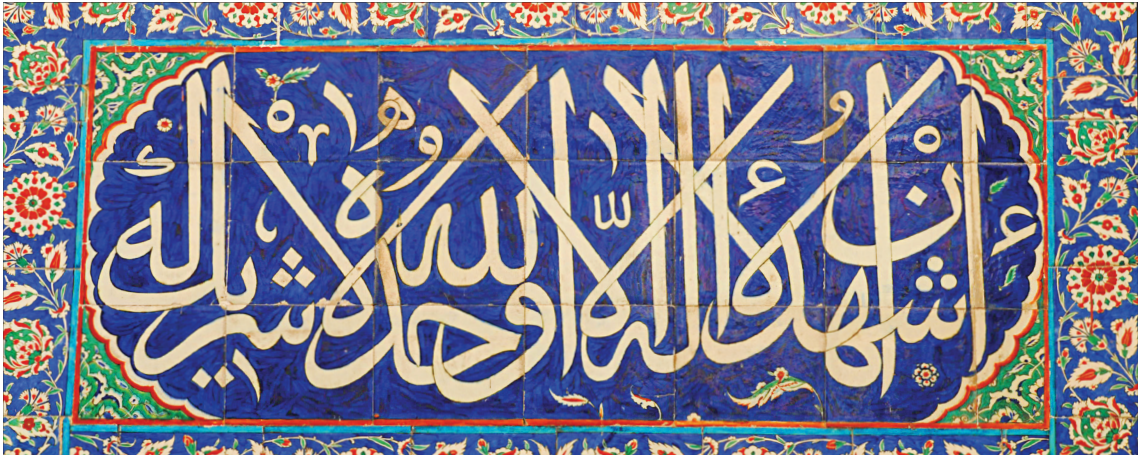 أشهد أن لا إله إلا الله وحده لا شريك له